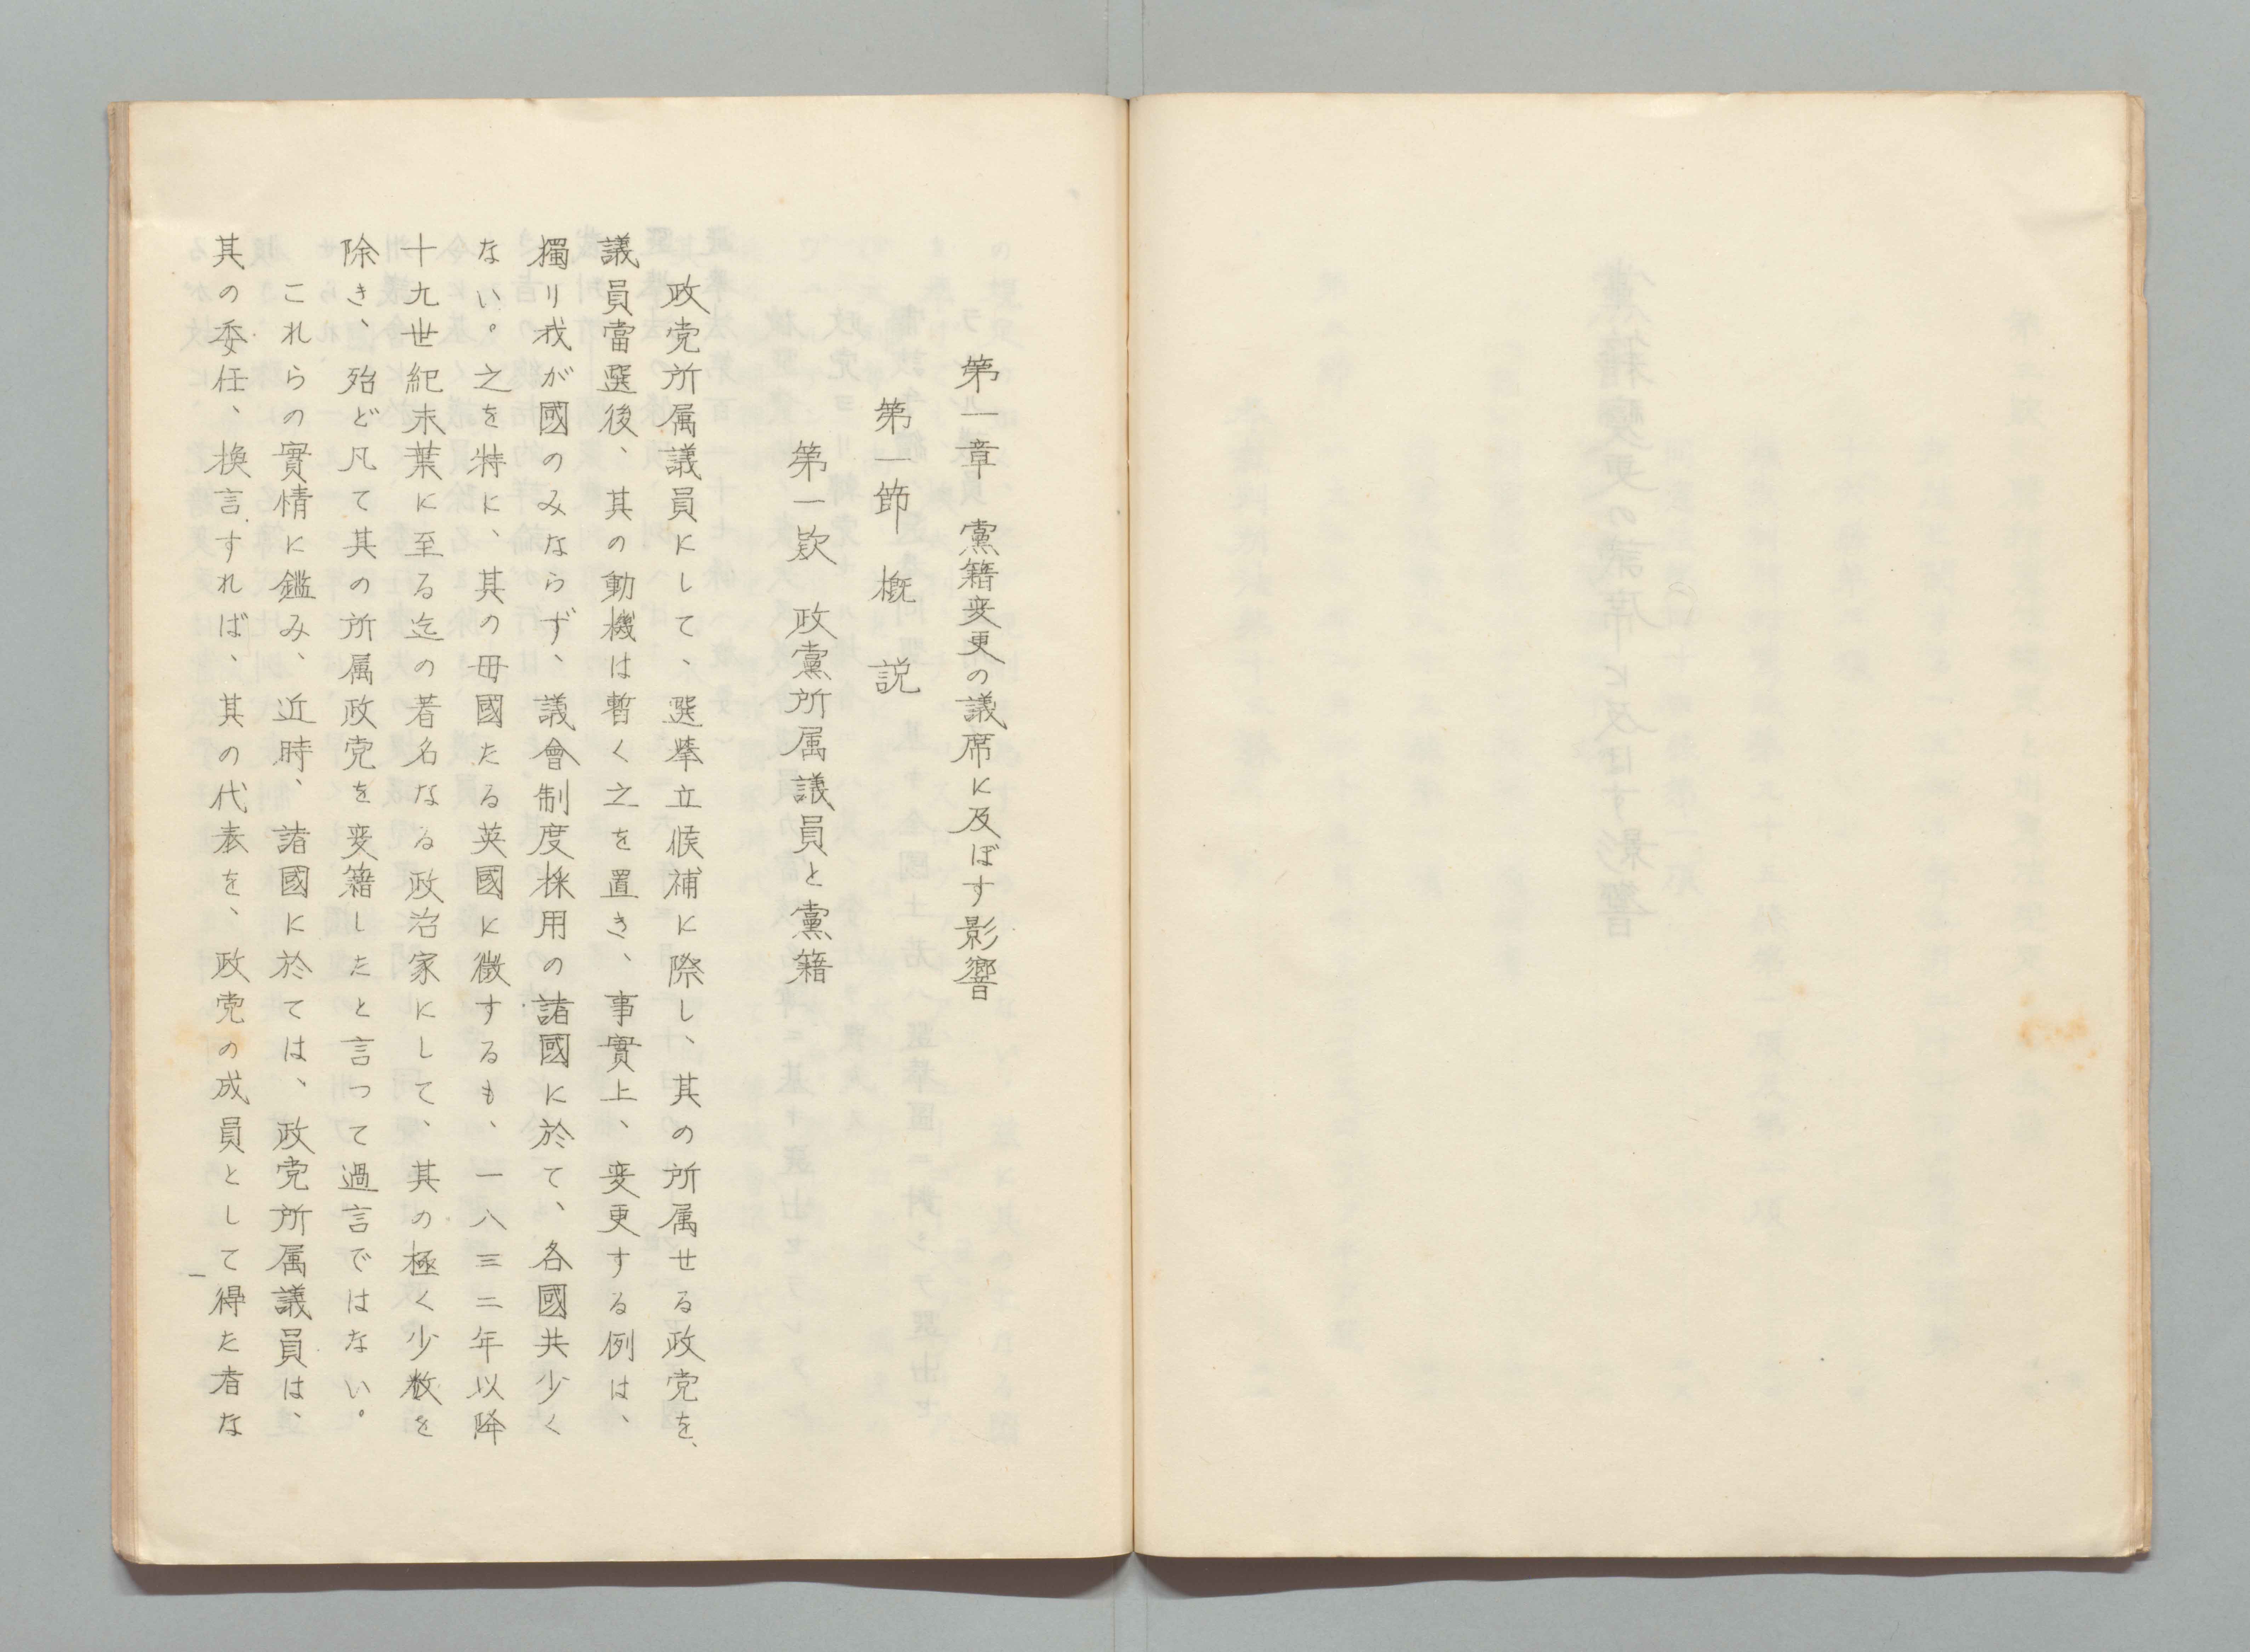 第一章　黨籍変更の議席に及ぼす影響
第一節　概　説
第一款　政黨所属議員と黨籍
政党所属議員にして、選挙立候補に際し、其の所属せる政党を、
議員當選後、其の動機は暫く之を置き、事實上、変更する例は、
獨り我が國のみならず、議會制度採用の諸國に於て、各國共少く
ない。之を特に、其の母國たる英國に徴するも、一八三二年以降
十九世紀末葉に至る迄の著名なる政治家にして、其の極く少数を
除き、殆ど凡て其の所属政党を変籍したと言って過言ではない。
これらの實情に鑑み、近時、諸國に於ては、政党所属議員は、
其の委任、換言すれば、其の代表を、政党の成員として得た者な